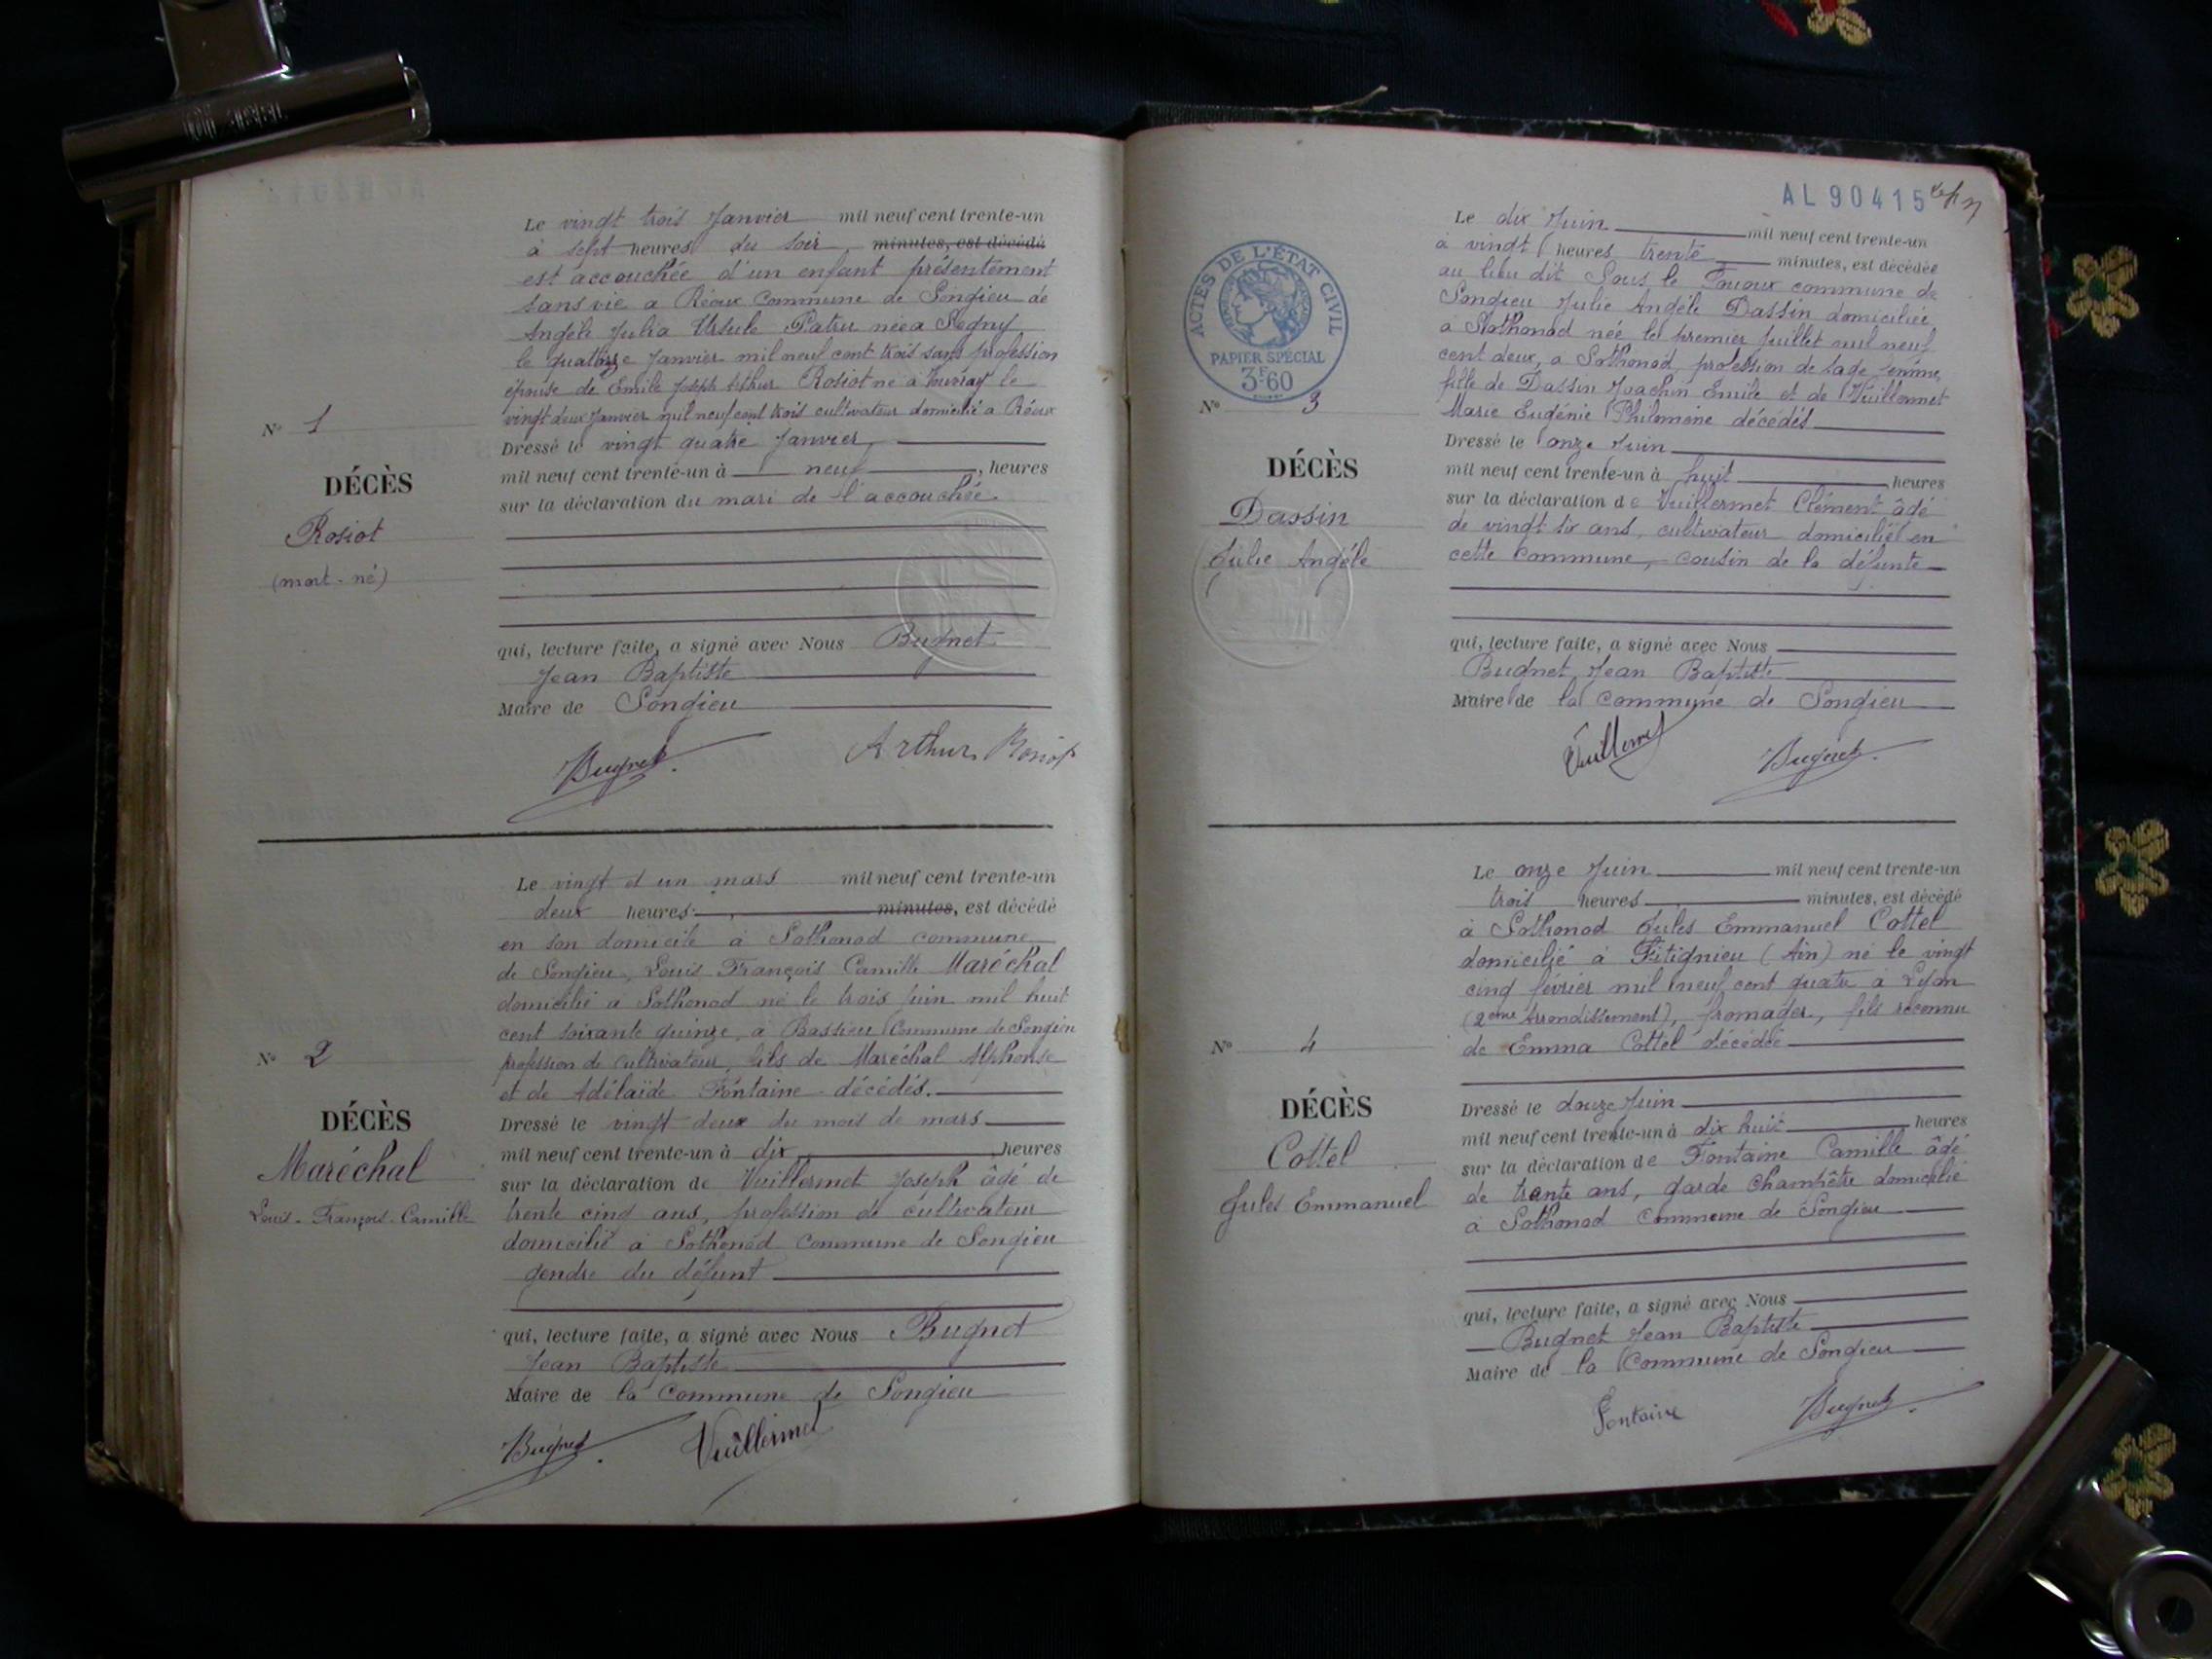 Le vingt trois Janvier mil neuf cent trente-un
à sept heures du soir, minutes, est décédé
est accouchée d'un enfant présentement
sans vie a Réoux commune de Songieu de
Angèle Julia Ursule Patru née a Segny
le quatorze Janvier mil neuf cent trois sans profession
épouse de Emile Joseph Arthur Rosiot né à le
vingt deux Janvier mil neuf cent trois cultivateur domicilié a Réoux
N° 1
DÉCÈS
Rosiot
(mort-né)
Dressé le vingt quatre Janvier
mil neuf cent trente-un à neuf, heures
sur la déclaration du mari de l'accouchée
qui, lecture faite, a signé avec Nous Bugnet
Jean Baptiste
Maire de Songieu
Bugnet Arthur Rosiot
Le vingt et un mars mil neuf cent trente-un
deux heures, minutes, est décédé
en son domicile à Sothonod commune
de Songieu, Louis François Camille Maréchal
domicilié a Sothonod né le trois juin mil huit
cent soixante quinze, à Bassieu Commune de Songieu
profession de cultivateur, fils de Maréchal Alphonse
et de Adélaïde Fontaine décédés.
N° 2
DÉCÈS
Maréchal
Louis-François-Camille
Dressé le vingt deux du mois de mars
mil neuf cent trente-un à dix, heures
sur la déclaration de Vuillermet Joseph âgé de
trente cinq ans, profession de cultivateur
domicilié à Sothonod Commune de Songieu
gendre du défunt
qui, lecture faite, a signé avec Nous Bugnet
Jean Baptiste
Maire de la Commune de Songieu
Bugnet Vuillermet
AL90415
ACTES DE L'ÉTAT CIVIL
PAPIER SPÉCIAL
3F60
Le dix Juin mil neuf cent trente-un
à vingt heures trente minutes, est décédée
au lieu dit Sous le commune de
Songieu Julie Angèle Dassin domiciliée
à Sothonod née le premier juillet mil neuf
cent deux, à Sothonod, profession de sage femme,
fille de Dassin Joachin Emile et de Vuillermet
Marie Eugénie Philomène décédés
N° 3
DÉCÈS
Dassin
Julie Angèle
Dressé le onze Juin
mil neuf cent trente-un à huit, heures
sur la déclaration de Vuillermet Clément âgé
de vingt six ans, cultivateur domicilié en
cette commune, cousin de la défunte
qui, lecture faite, a signé avec Nous
Bugnet Jean Baptiste
Maire de la commune de Songieu
Vuillermet Bugnet
Le onze Juin mil neuf cent trente-un
trois heures minutes, est décédé
à Sothonod Jules Emmanuel Cottel
domicilié à Fitignieu (Ain) né le vingt
cinq février mil neuf cent quatre à Lyon
(2ème Arrondissement), fromager, fils reconnu
de Emma Cottel décédée
N° 4
DÉCÈS
Cottel
Jules Emmanuel
Dressé le douze Juin
mil neuf cent trente-un à dix huit heures
sur la déclaration de Fontaine Camille âgé
de trente ans, garde Champêtre domicilié
à Sothonod Commune de Songieu
qui, lecture faite, a signé avec Nous
Bugnet Jean Baptiste
Maire de la Commune de Songieu
Fontaine Bugnet